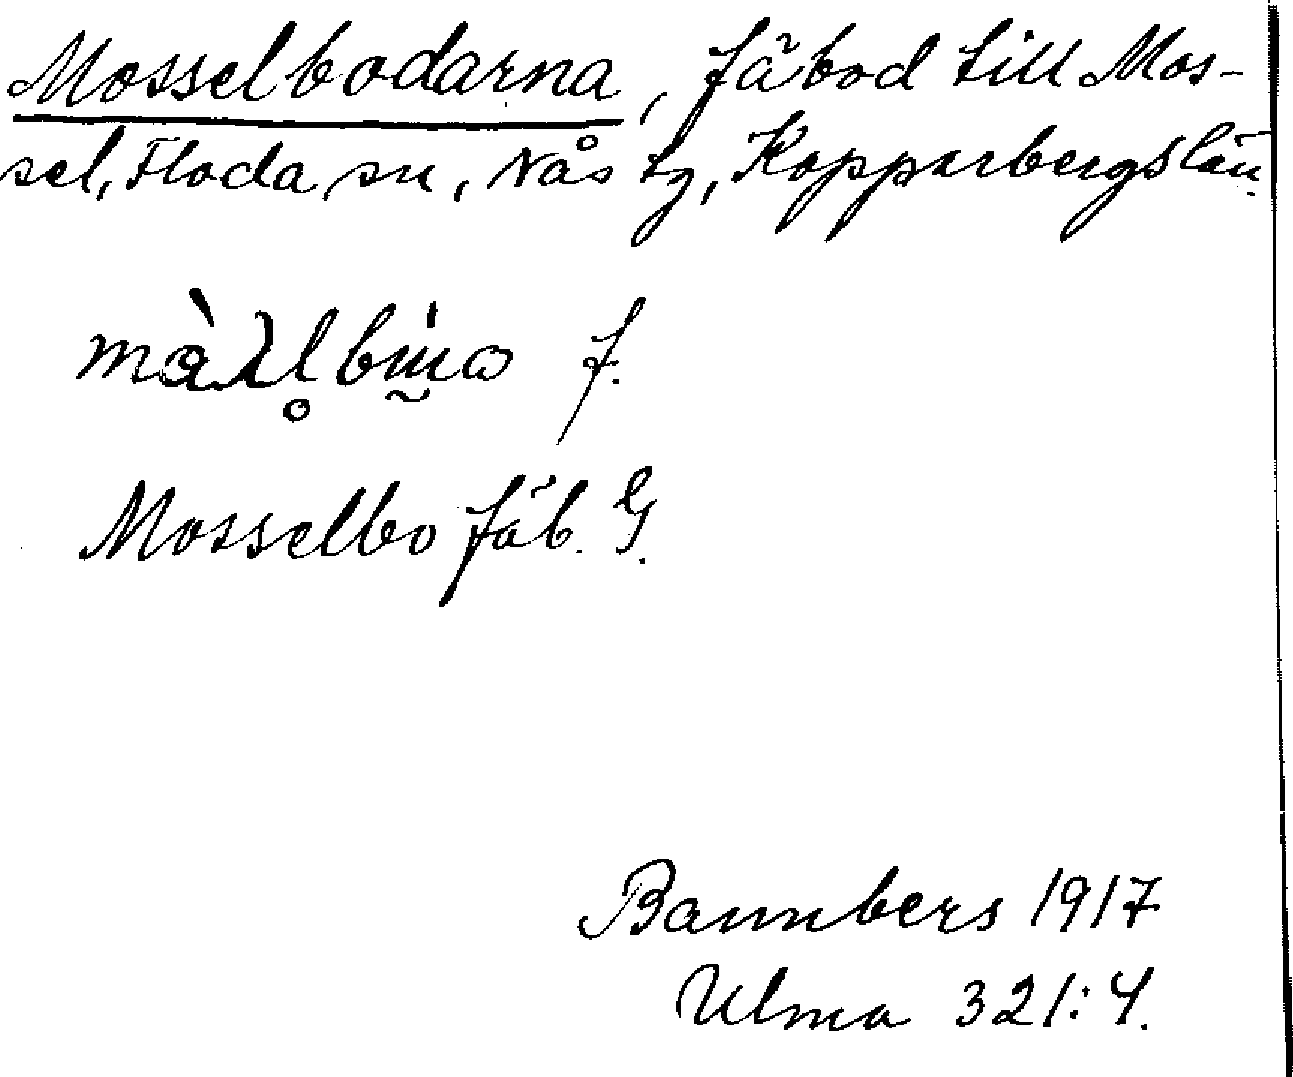 Mosselbodarna, fäbod till Mos-
sel, Floda sn, Nås tg, Kopparbergs län
f.
Mosselbo fäb. G.
Bannbers 1917
Ulma 321:4.